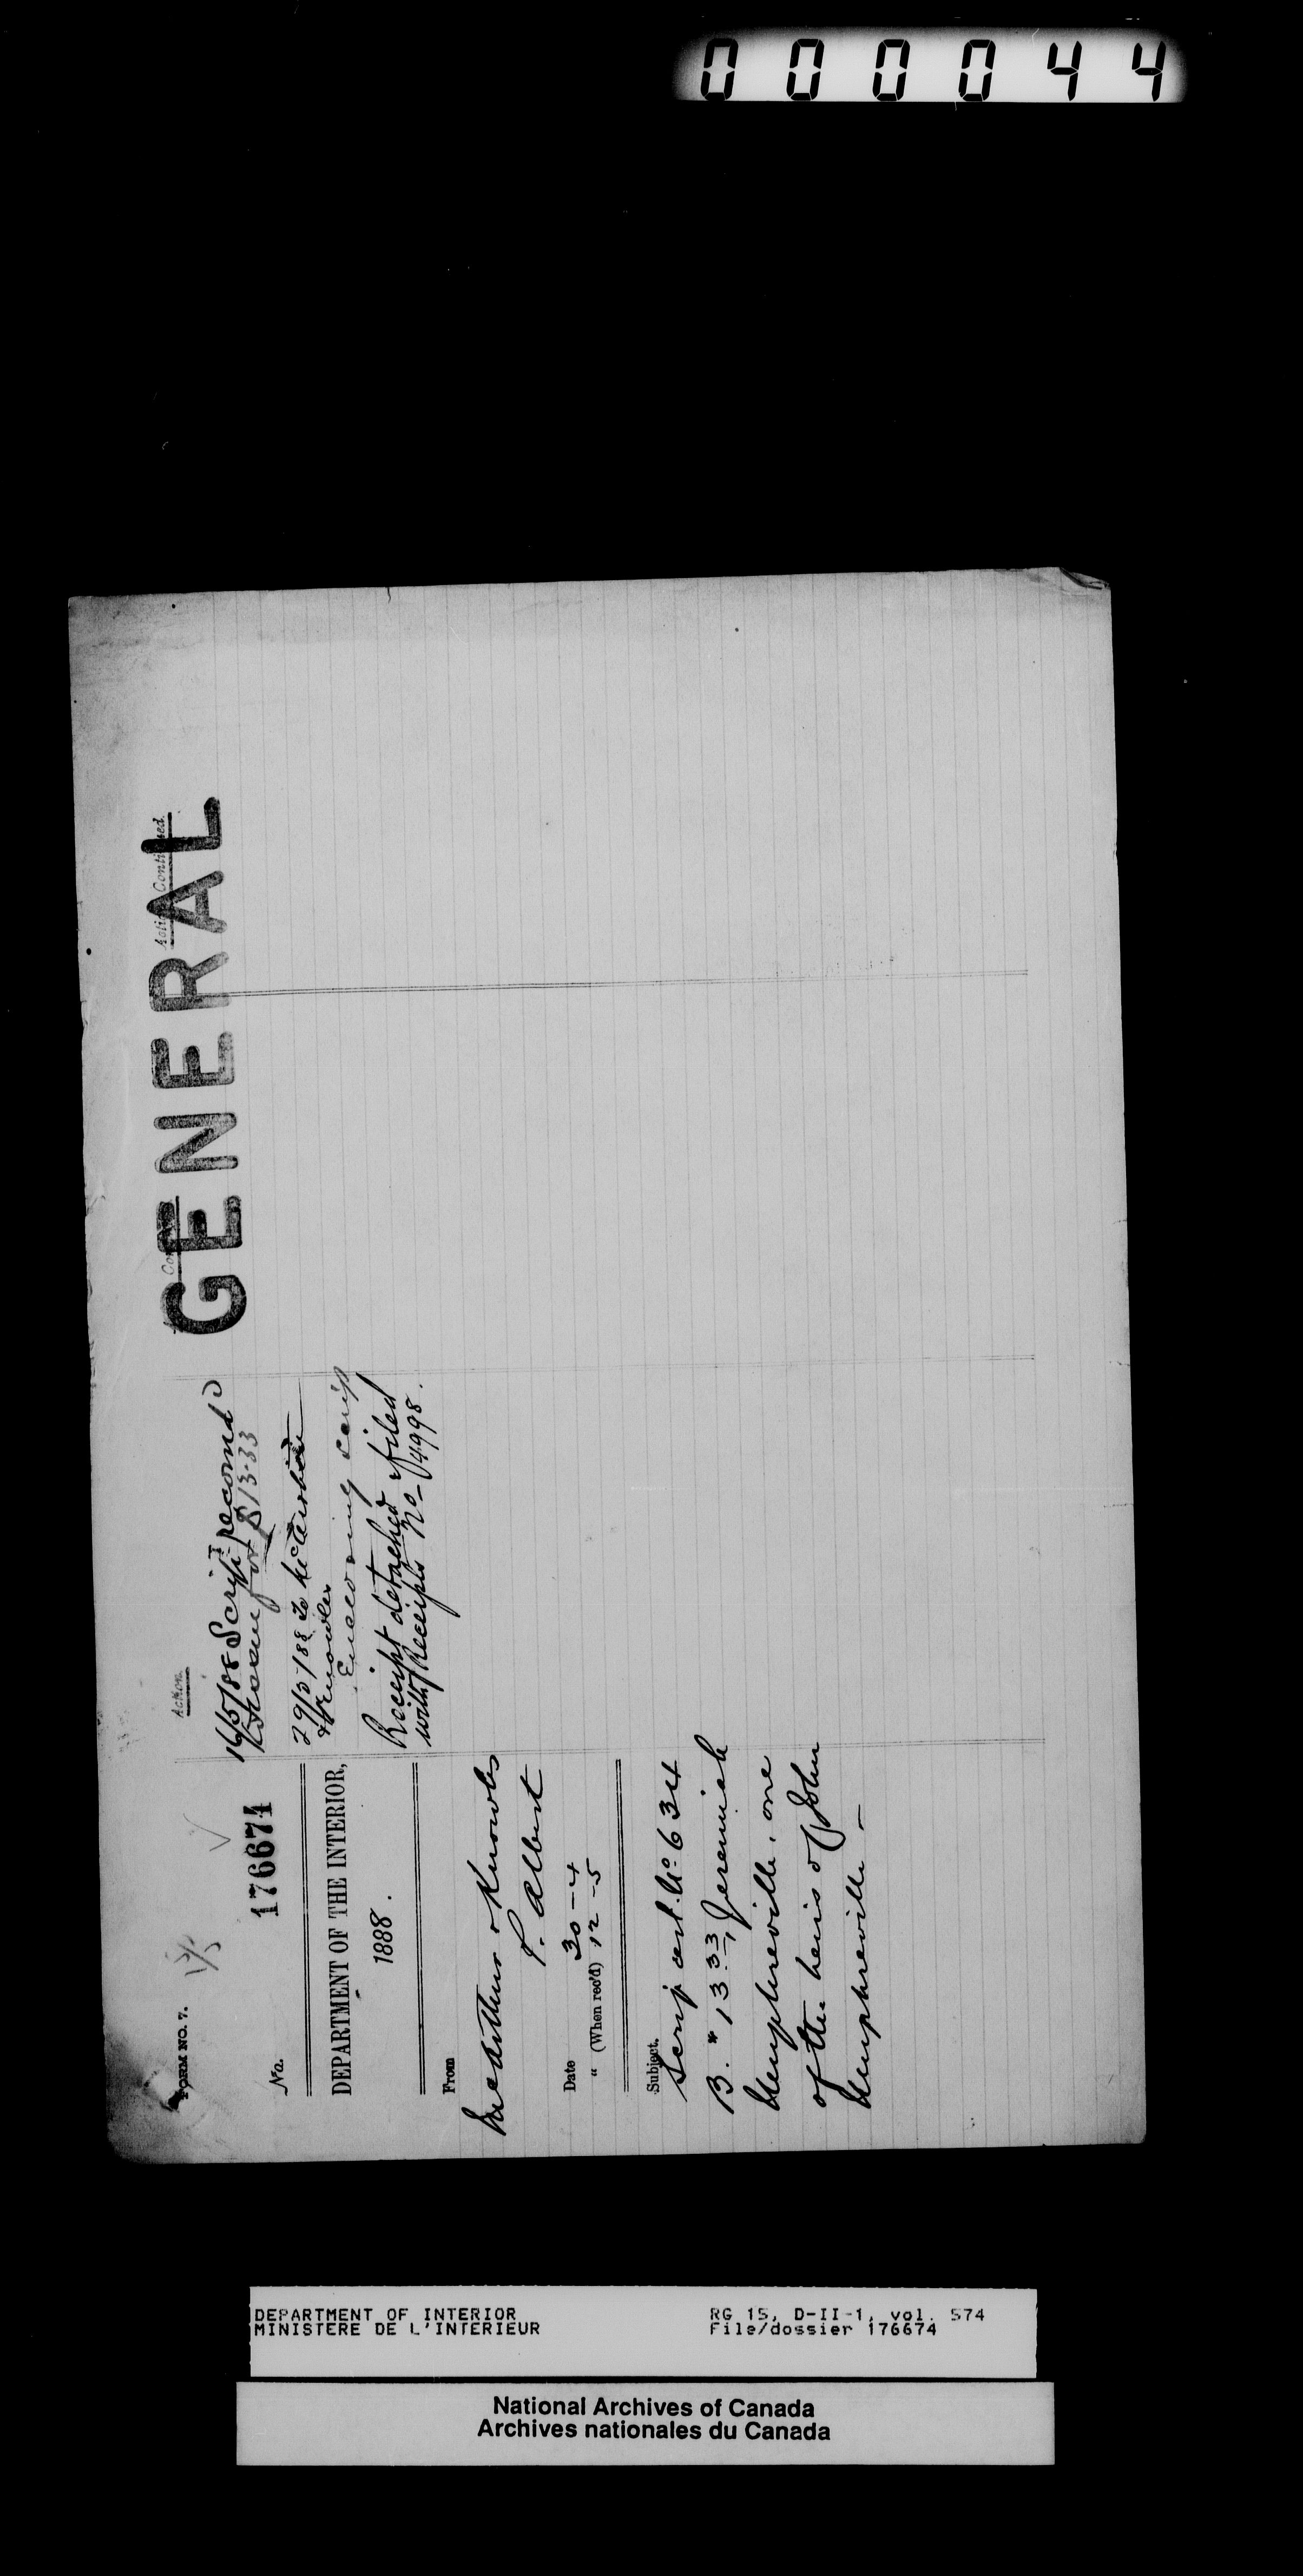 000044
FORM NO. 7.
No. 176674
DEPARTMENT OF THE INTERIOR,
1888.
From
McArthur & Knowles
P. Albert
Date 30-4
" (When rec'd) 12-5
Subject.
Scrip cert. No 634
B. $13.33, Jeremiah
Umphreville, one
of the heirs of John
Umphreville —
Action.
16/5/88 Scrip recomd
for $13.33
29/5/88 To McArthur
& Knowles
Enclosing scrip
Receipt detached & filed
with Receipts No 4998.
GENERAL
Action Continued.
DEPARTMENT OF INTERIOR
MINISTERE DE L'INTERIEUR
RG 15, D-II-1, vol. 574
File/dossier 176674
National Archives of Canada
Archives nationales du Canada